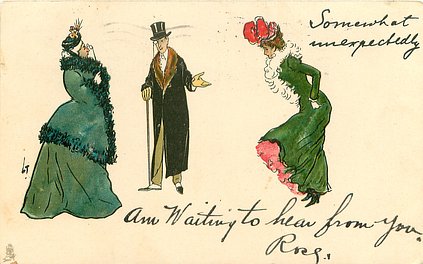 Somewhat
unexpectedly
Am Waiting to hear from you
Rose.